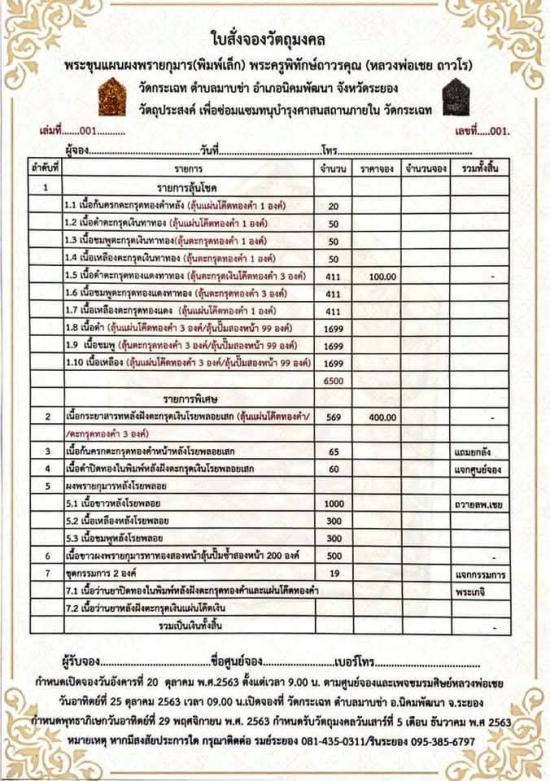 ใบสั่งจองวัตถุมงคล
พระขุนแผนผงพรายกุมาร(พิมพ์เล็ก) พระครูพิทักษ์ถาวรคุณ (หลวงพ่อเชย ถาวโร)
วัดกระเฉท ตำบลมาบข่า อำเภอนิคมพัฒนา จังหวัดระยอง
วัตถุประสงค์ เพื่อซ่อมแซมทนุบำรุงศาสนสถานภายใน วัดกระเฉท
เล่มที่.......001........... เลขที่.....001.
ผู้จอง..............................วันที่..............................โทร..............................
ลำดับที่ รายการ จำนวน ราคาจอง จำนวนจอง รวมทั้งสิ้น
1 รายการลุ้นโชค
1.1 เนื้อก้นครกตะกรุดทองคำหลัง (ลุ้นแผ่นโค๊ตทองคำ 1 องค์) 20
1.2 เนื้อดำตะกรุดเงินทาทอง (ลุ้นแผ่นโค๊ตทองคำ 1 องค์) 50
1.3 เนื้อชมพูตะกรุดเงินทาทอง(ลุ้นตะกรุดทองคำ 1 องค์) 50
1.4 เนื้อเหลืองตะกรุดเงินทาทอง (ลุ้นตะกรุดทองคำ 1 องค์) 50
1.5 เนื้อดำตะกรุดทองแดงทาทอง (ลุ้นตะกรุดเงินโค๊ตทองคำ 3 องค์) 411 100.00 -
1.6 เนื้อชมพูตะกรุดทองแดงทาทอง (ลุ้นตะกรุดทองคำ 3 องค์) 411
1.7 เนื้อเหลืองตะกรุดทองแดง (ลุ้นตะกรุดทองคำ 1 องค์) 411
1.8 เนื้อดำ (ลุ้นแผ่นโค๊ตทองคำ 3 องค์/ลุ้นปั๊มสองหน้า 99 องค์) 1699
1.9 เนื้อชมพู (ลุ้นตะกรุดทองคำ 3 องค์/ลุ้นปั๊มสองหน้า 99 องค์) 1699
1.10 เนื้อเหลือง (ลุ้นแผ่นโค๊ตทองคำ 3 องค์/ลุ้นปั๊มสองหน้า 99 องค์) 1699
6500
รายการพิเศษ
2 เนื้อกระยาสารทหลังฝังตะกรุดเงินโรยพลอยเสก (ลุ้นแผ่นโค๊ตทองคำ/ 569 400.00 -
/ตะกรุดทองคำ 3 องค์)
3 เนื้อก้นครกตะกรุดทองคำหน้าหลังโรยพลอยเสก 65 แถมยกลัง
4 เนื้อดำปิดทองในพิมพ์หลังฝังตะกรุดเงินโรยพลอยเสก 60 แจกศูนย์จอง
5 ผงพรายกุมารหลังโรยพลอย
5.1 เนื้อขาวหลังโรยพลอย 1000 ถวายลพ.เชย
5.2 เนื้อเหลืองหลังโรยพลอย 300
5.3 เนื้อชมพูหลังโรยพลอย 300
6 เนื้อขาวผงพรายกุมารทาทองสองหน้าลุ้นปั๊มซ้ำสองหน้า 200 องค์ 500 -
7 ชุดกรรมการ 2 องค์ 19 แจกกรรมการ
7.1 เนื้อว่านยาปิดทองในพิมพ์หลังฝังตะกรุดทองคำและแผ่นโค๊ตทองคำ พระเกจิ
7.2 เนื้อว่านยาหลังฝังตะกรุดเงินแผ่นโค๊ตเงิน
รวมเป็นเงินทั้งสิ้น -
ผู้รับจอง..............................ชื่อศูนย์จอง..............................เบอร์โทร..............................
กำหนดเปิดจองวันอังคารที่ 20 ตุลาคม พ.ศ.2563 ตั้งแต่เวลา 9.00 น. ตามศูนย์จองและเพจชมรมศิษย์หลวงพ่อเชย
วันอาทิตย์ที่ 25 ตุลาคม 2563 เวลา 09.00 น.เปิดจองที่ วัดกระเฉท ตำบลมาบข่า อ.นิคมพัฒนา จ.ระยอง
กำหนดพุทธาภิเษกวันอาทิตย์ที่ 29 พฤศจิกายน พ.ศ. 2563 กำหนดรับวัตถุมงคลวันเสาร์ที่ 5 เดือน ธันวาคม พ.ศ 2563
หมายเหตุ หากมีสงสัยประการใด กรุณาติดต่อ รมย์ระยอง 081-435-0311/รินระยอง 095-385-6797